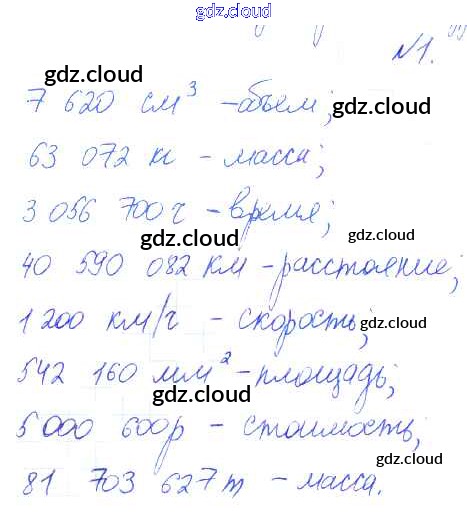 gdz.cloud
№1.
gdz.cloud
gdz.cloud
7 620 см³ - объем;
63 072 кг - масса;
3 056 700 ч - время;
gdz.cloud
gdz.cloud
40 590 082 км - расстояние;
1 200 км/ч - скорость;
gdz.cloud
542 160 мм² - площадь;
gdz.cloud
5 000 600 р - стоимость;
gdz.cloud
81 703 627 т - масса.
gdz.cloud